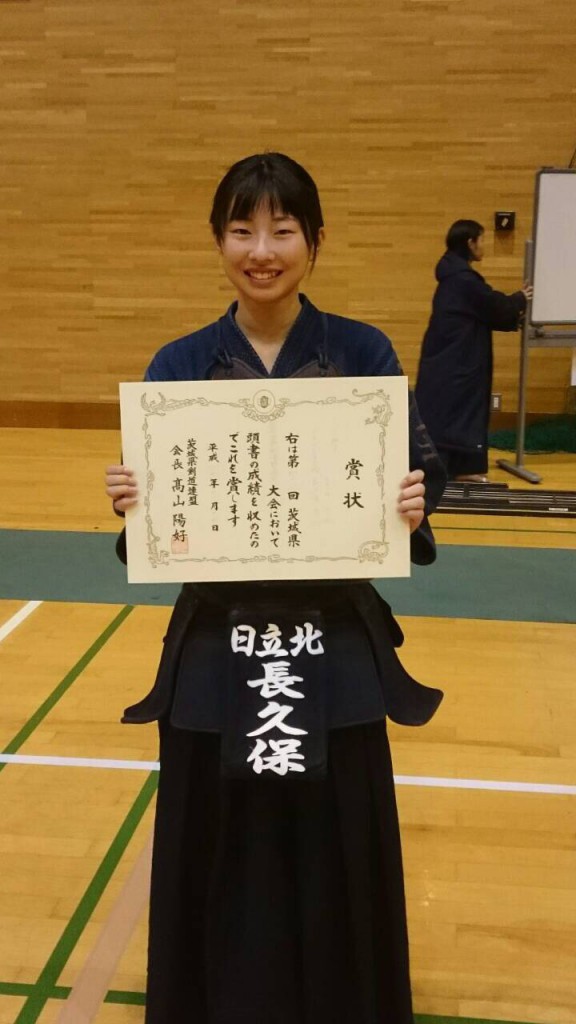 賞状
右は第　回茨城県
大会において
頭書の成績を収めたの
でこれを賞します
平成　年　月　日
茨城県剣道連盟
会長 髙山陽好
日立北
長久保